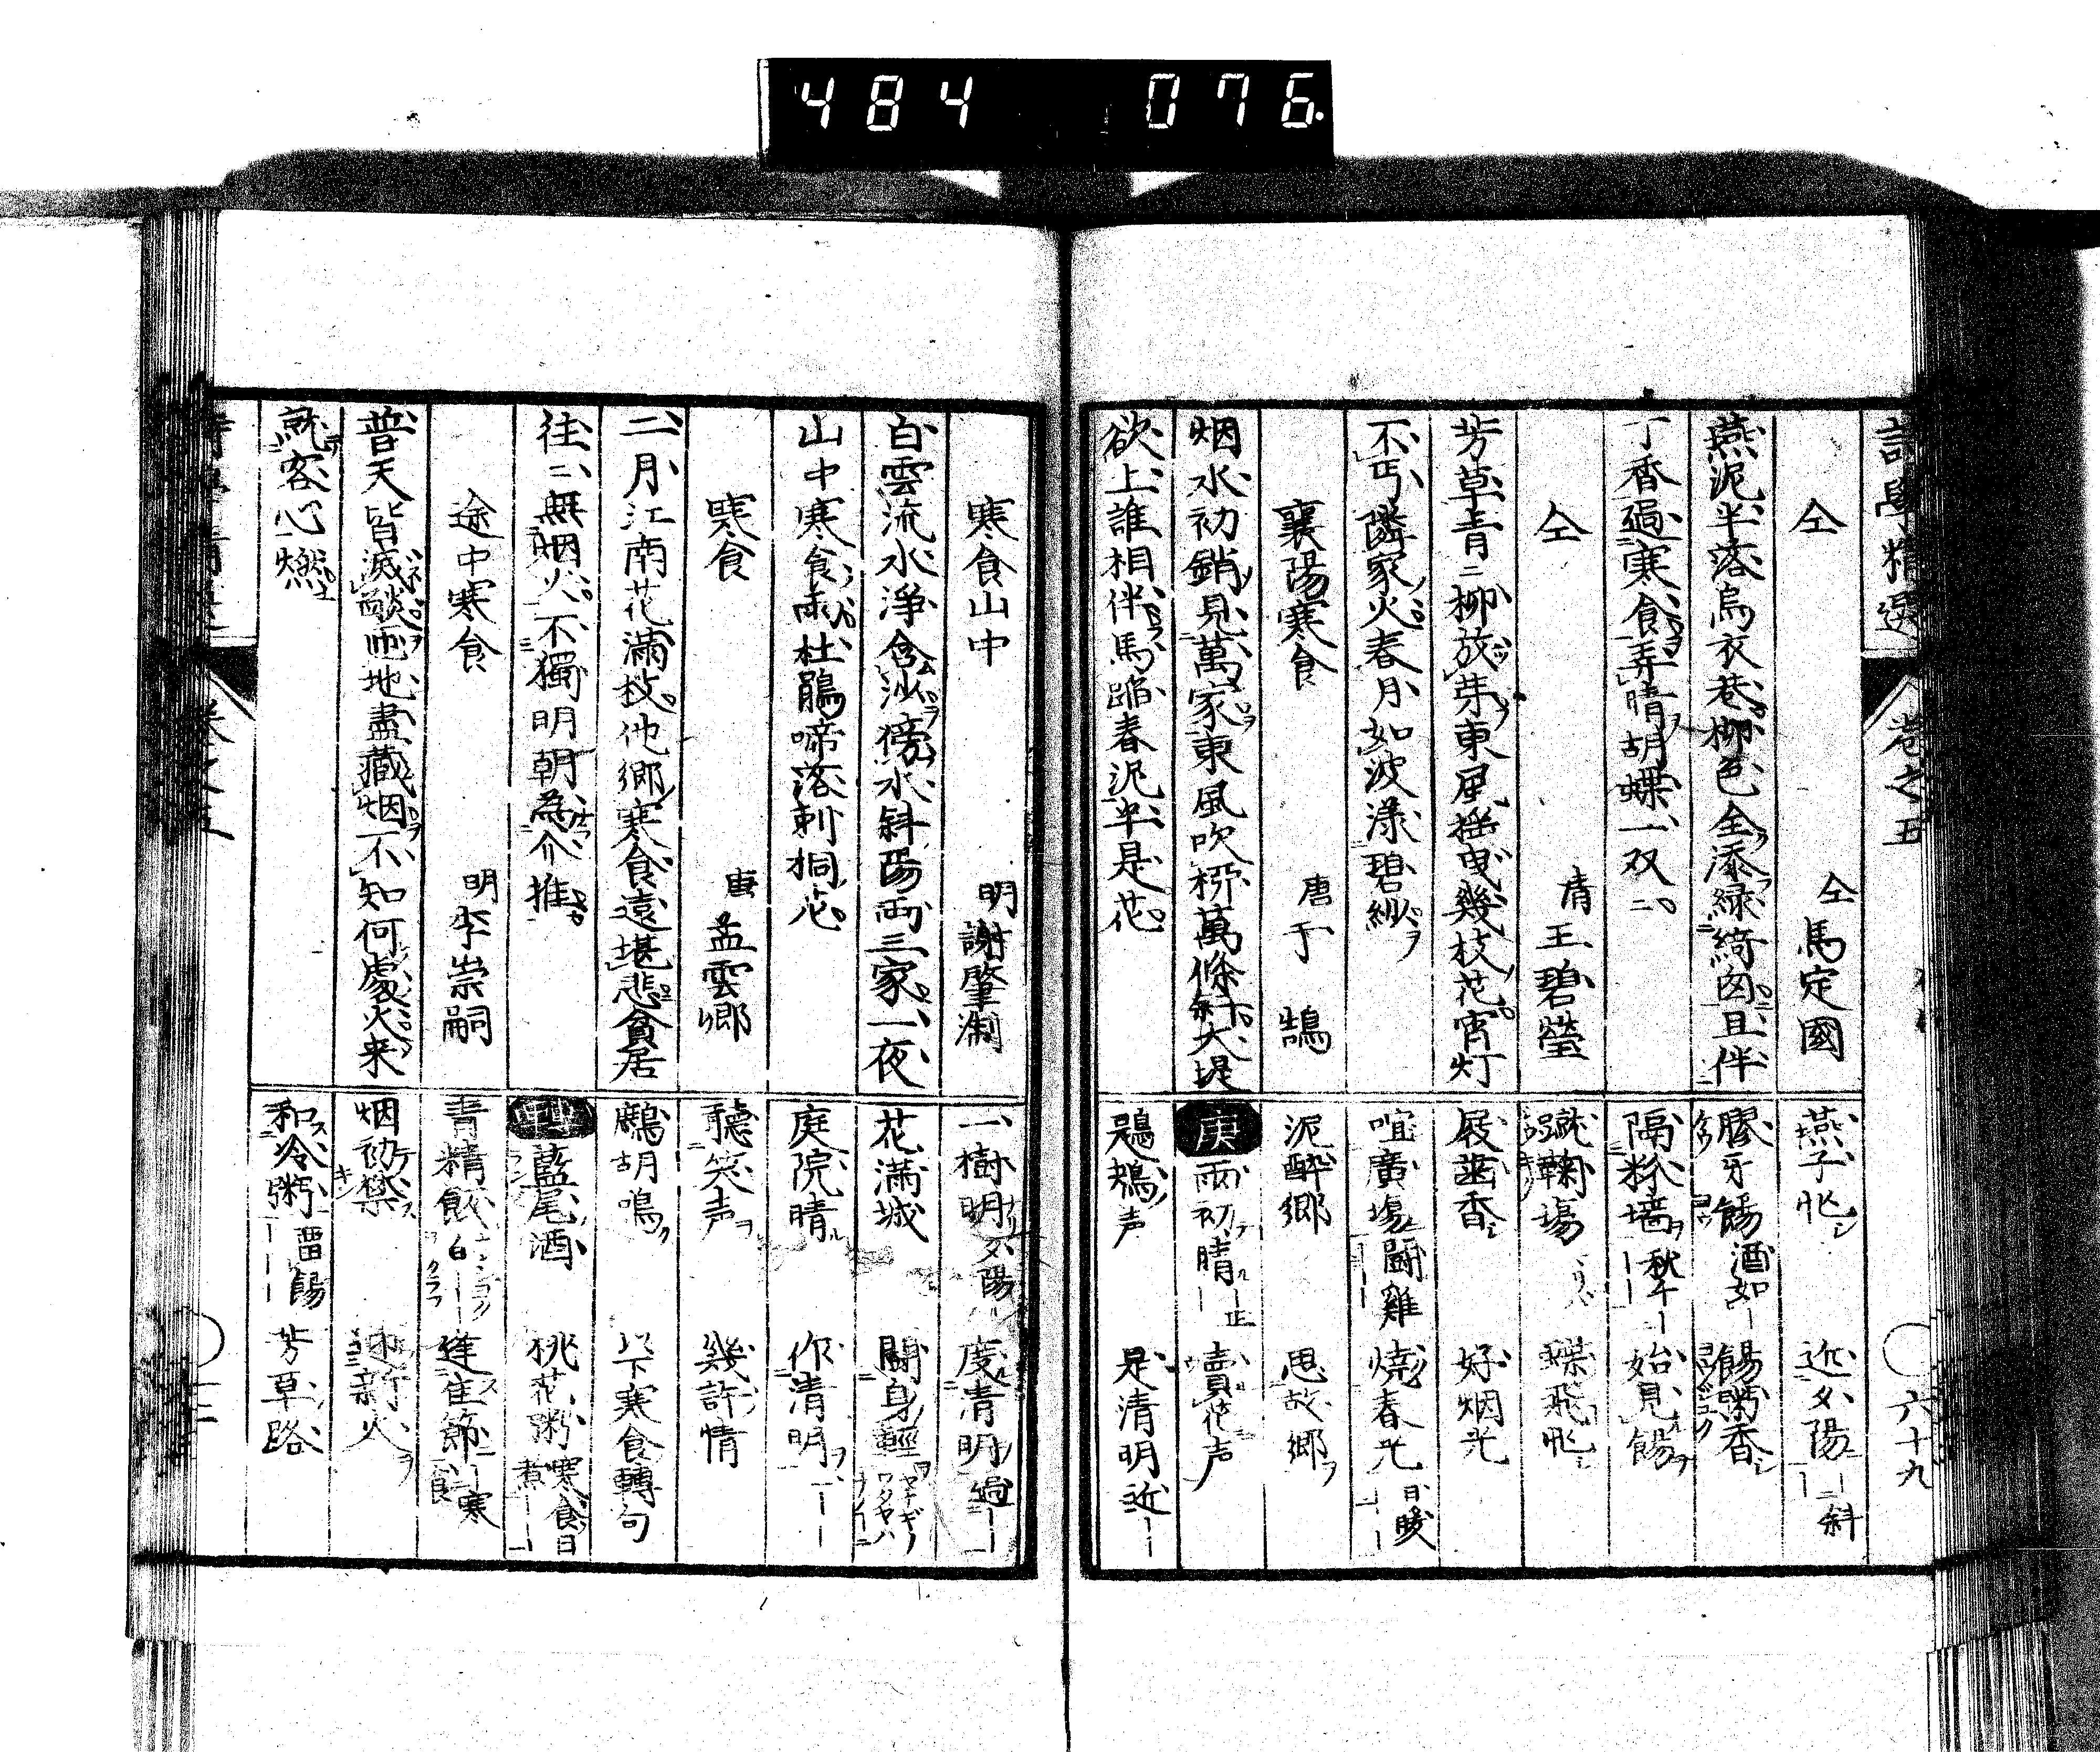 484 076
詩學精選 巻之五 六十九
仝 仝馬定國
燕泥半落烏衣巷柳色全添緑綺囪且伴
丁香過寒食弄晴胡蝶一双〻
仝 清王碧瑩
芳草青〻柳放芽東風揺曳幾枝花宵灯
不丐隣家火春月如波漾碧紗
襄陽寒食 唐于鵠
烟水初銷見萬家東風吹柳萬條斜大堤
欲上誰相伴馬蹈春泥半是花
燕子忙 近夕陽 斜
膠牙餳 酒如 餳粥香
隔粉墻 秋千 始見餳
蹴鞠塲 蝶飛忙
屐齒香 好烟光
喧廣塲 闘雞 燒春光 日暖
泥醉郷 思故郷
庚 雨初晴 正 賣花声
鶗鴂声 是清明近
寒食山中 明謝肇淛
白雲流水浄含沙傍水斜陽両三家一夜
山中寒食雨杜鵑啼落刺桐花
寒食 唐孟雲卿
二月江南花滿枝他郷寒食遠堪悲貧居
往〻無烟火不獨明朝為介推
途中寒食 明李崇嗣
普天皆滅燄匝地盡藏烟不知何處火来
就客心燃
一樹明 夕陽 度清明 過
花滿城 闘身輕
庭院晴 作清明
聽笑声 幾許情
鷓胡鳴 以下寒食轉句
藍尾酒 桃花粥 寒食日煮
青精飯 白 逢佳節 寒食
烟初禁 新火
和冷粥 留餳 芳草路